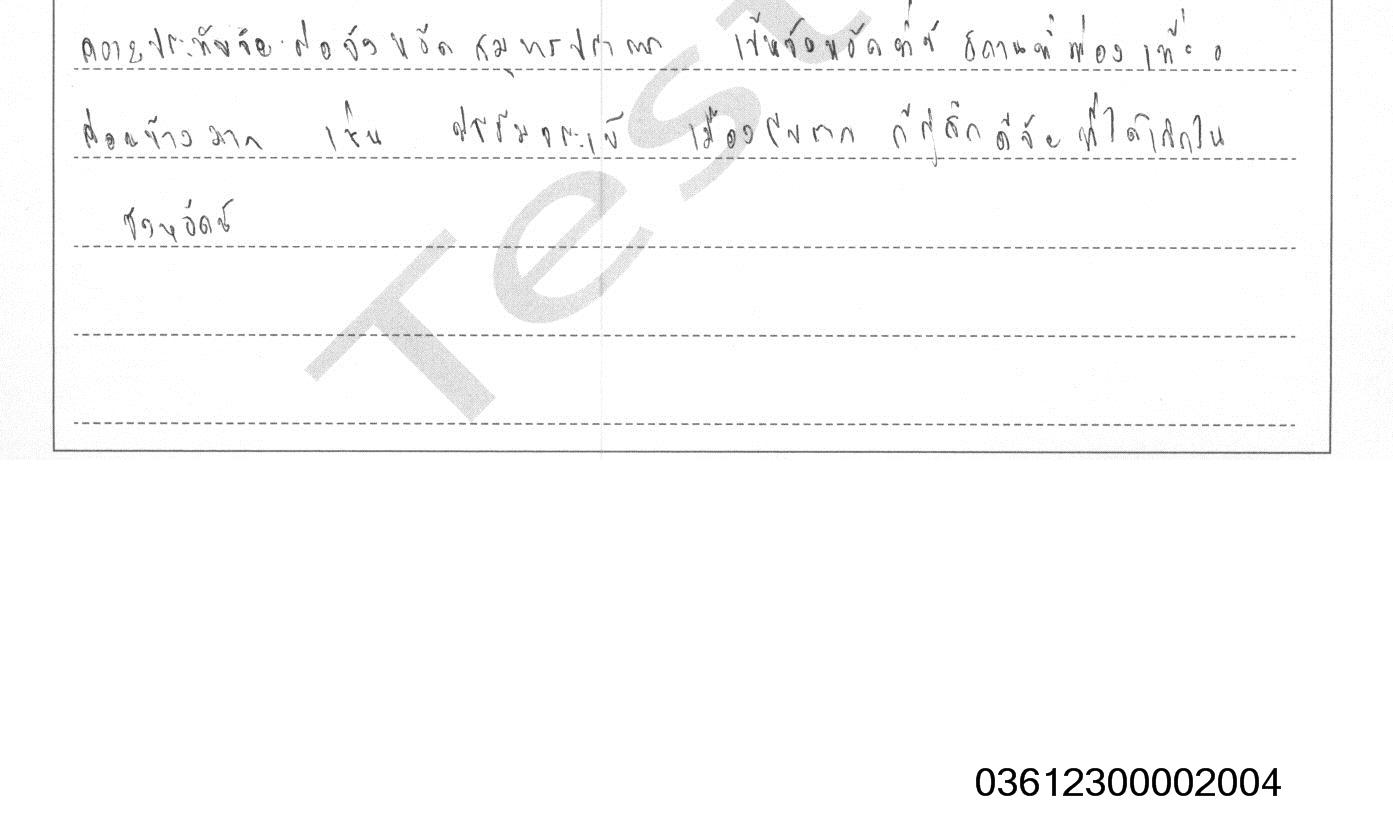 ความประทับใจต่อจังหวัดสมุทรปราการ เป็นจังหวัดที่มีสถานที่ท่องเที่ยว
ค่อนข้างมาก เช่น ฟาร์มจระเข้ เมืองโบราณ ก็รู้สึกดีใจที่ได้เกิดใน
จังหวัดนี้
Test
03612300002004